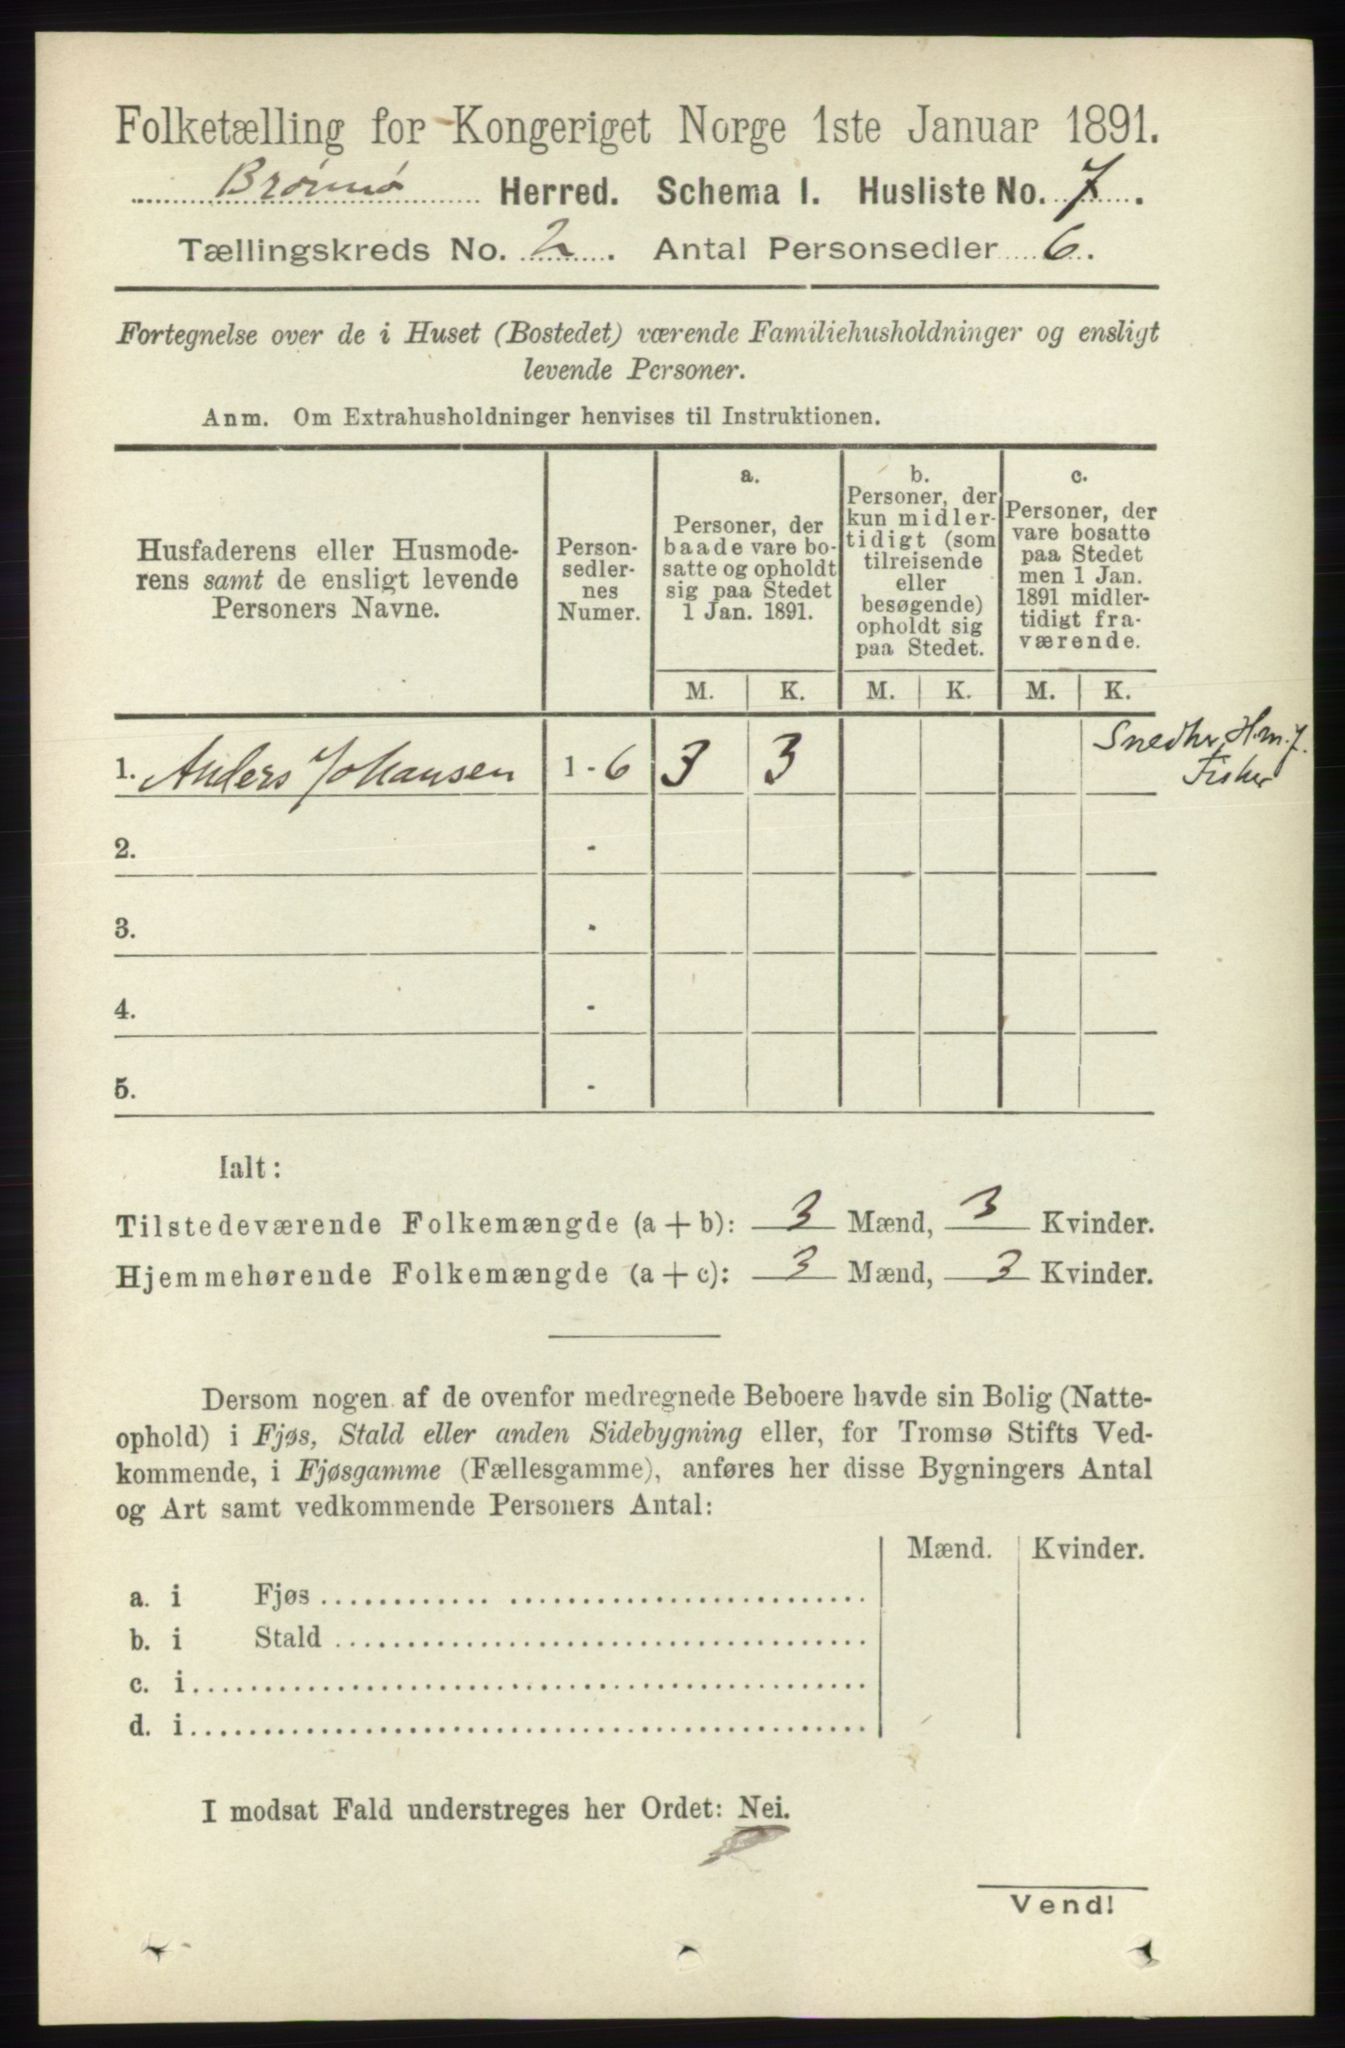 Folketælling for Kongeriget Norge 1ste Januar 1891.
Brønnø Herred. Schema 1. Husliste No. 7.
Tællingskreds No. 2. Antal Personsedler 6.
Fortegnelse over de i Huset (Bostedet) værende Familiehusholdninger og ensligt
levende Personer.
Anm. Om Extrahusholdninger henvises til Instruktionen.
Husfaderens eller Husmode-
rens samt de ensligt levende
Personers Navne.
Person-
sedler-
nes
Numer.
a.
Personer, der
baade vare bo-
satte og opholdt
sig paa Stedet
1 Jan. 1891.
b.
Personer, der
kun midler-
tidigt (som
tilreisende
eller
besøgende)
opholdt sig
paa Stedet.
c.
Personer, der
vare bosatte
paa Stedet
men 1 Jan.
1891 midler-
tidigt fra-
værende.
M. K. M. K. M. K.
1. Anders Johansen 1 - 6 3 3
Snedker, H.m.J.
Fisker
2. -
3. -
4. -
5. -
Ialt:
Tilstedeværende Folkemængde (a + b): 3 Mænd, 3 Kvinder.
Hjemmehørende Folkemængde (a + c): 3 Mænd, 3 Kvinder.
Dersom nogen af de ovenfor medregnede Beboere havde sin Bolig (Natte-
ophold) i Fjøs, Stald eller anden Sidebygning eller, for Tromsø Stifts Ved-
kommende, i Fjøsgamme (Fællesgamme), anføres her disse Bygningers Antal
og Art samt vedkommende Personers Antal:
Mænd. Kvinder.
a. i Fjøs
b. i Stald
c. i
d. i
I modsat Fald understreges her Ordet: Nei.
Vend!